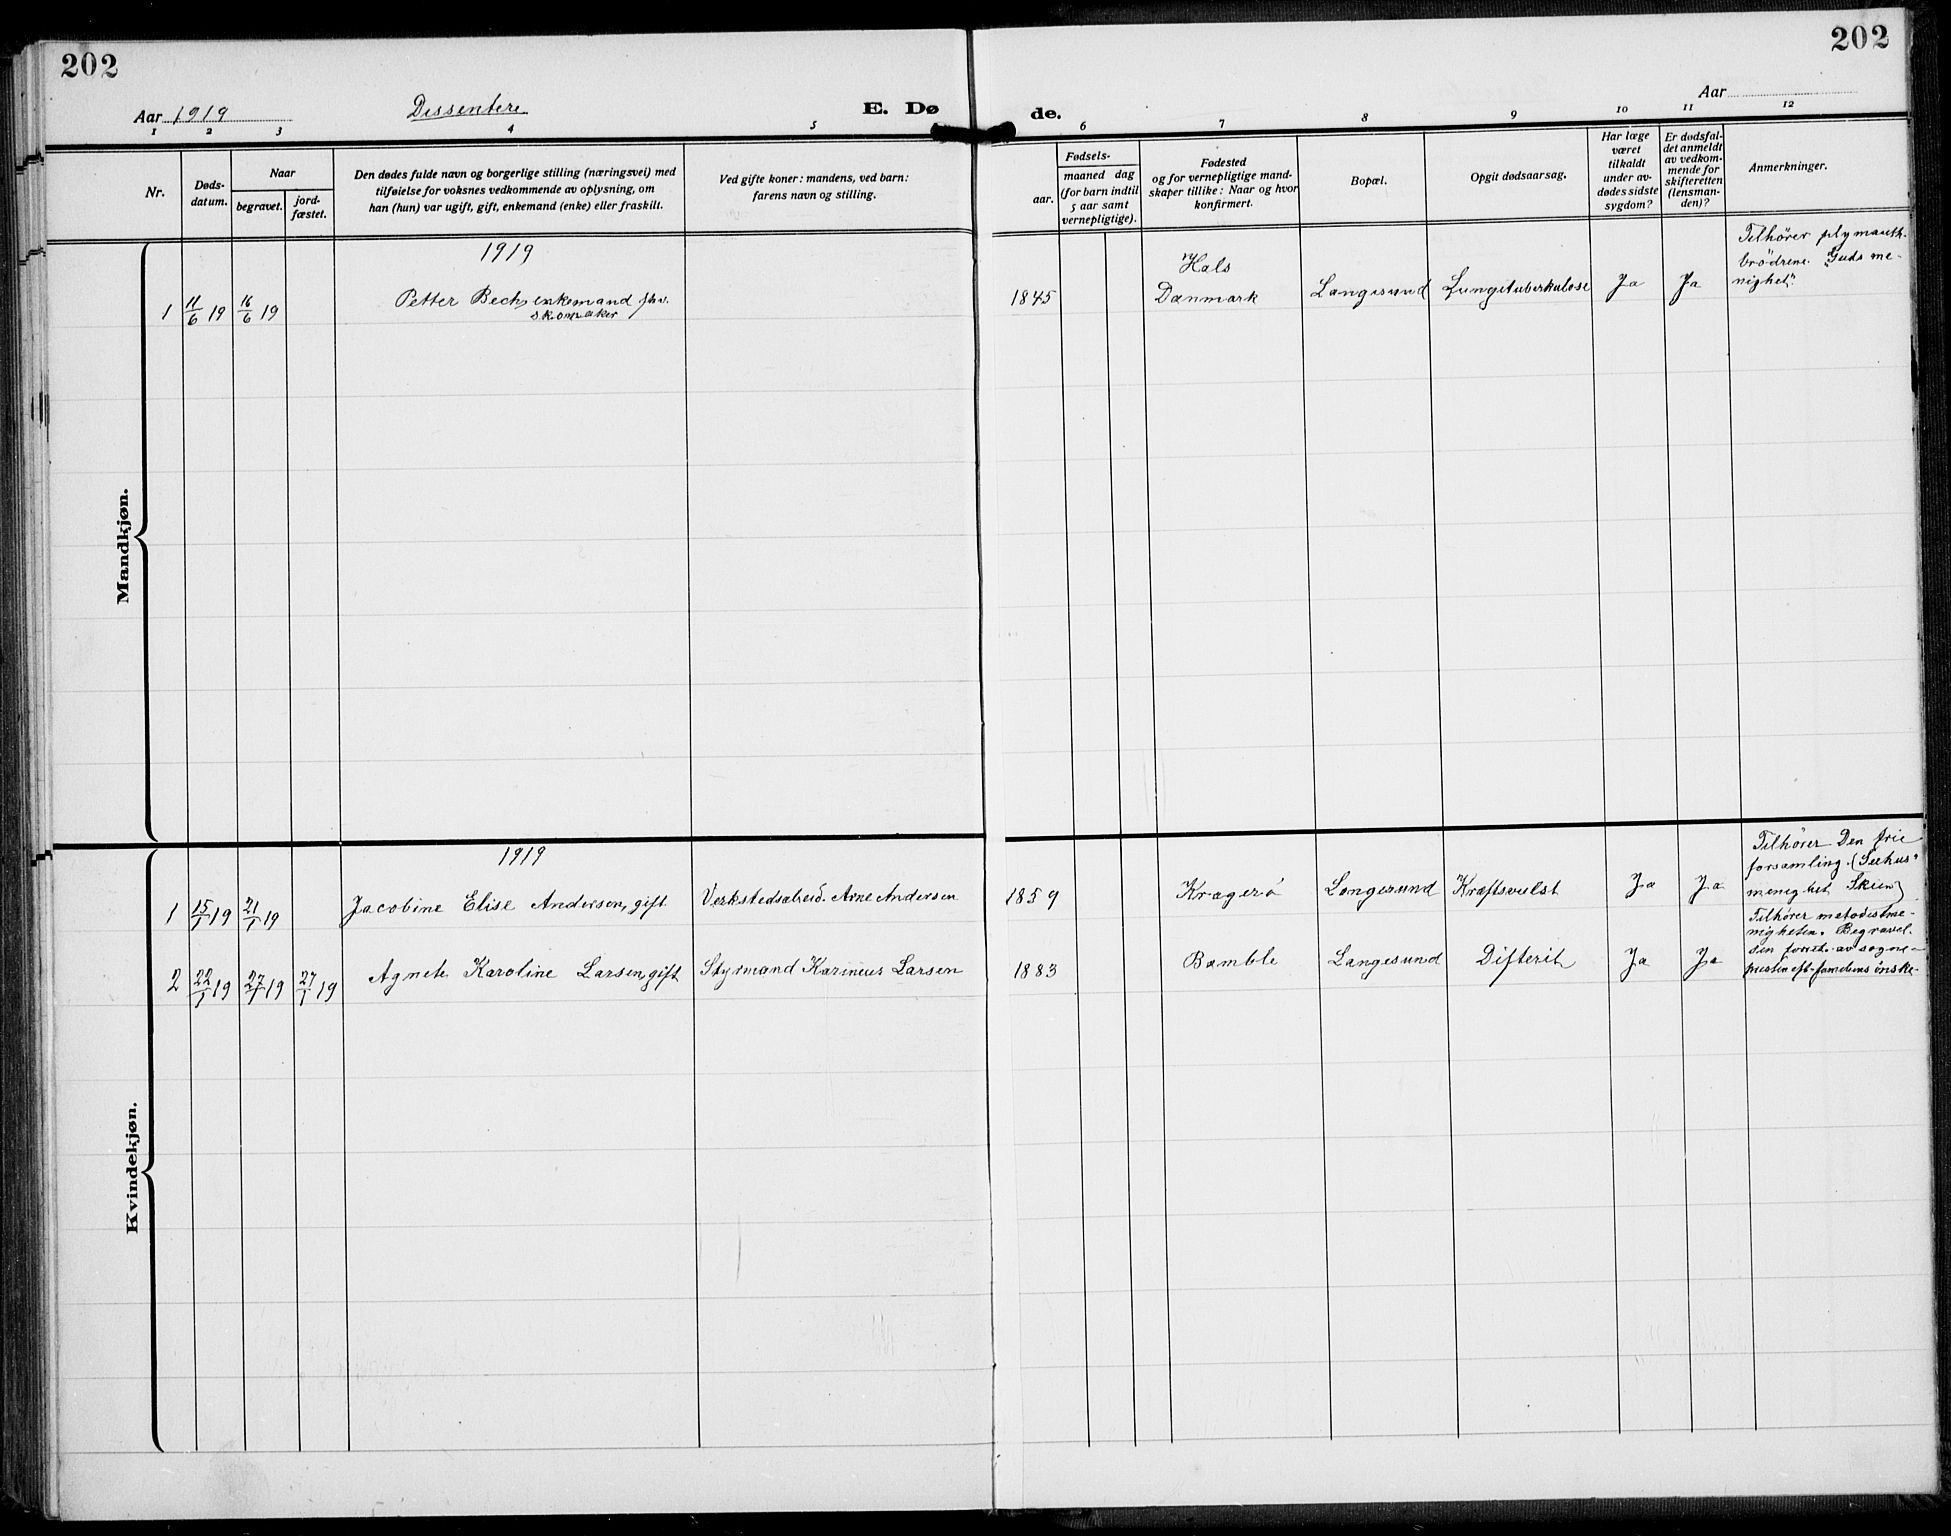 202
202
Aar 1919
Dissentere
E. Dø
de.
Aar
1 2 3 4 5 6 7 8 9 10 11 12
Nr.
Døds-
datum.
Naar
begravet.
jord-
fæstet.
Den dødes fulde navn og borgerlige stilling (næringsvei) med
tilføielse for voksnes vedkommende av oplysning, om
han (hun) var ugift, gift, enkemand (enke) eller fraskilt.
Ved gifte koner: mandens, ved barn:
farens navn og stilling.
Fødsels-
aar.
maaned dag
(for barn indtil
5 aar samt
vernepligtige).
Fødested
og for vernepligtige mand-
skaper tillike: Naar og hvor
konfirmert.
Bopæl.
Opgit dødsaarsag.
Har læge
været
tilkaldt
under av-
dødes sidste
sygdom?
Er dødsfal-
det anmeldt
av vedkom-
mende for
skifteretten
(lensman-
den)?
Anmerkninger.
Mandkjøn.
1919
1 11/6 19 16/6 19 Petter Bech, enkemand fhv.
skomaker
1845
Hals
Danmark
Langesund
Lungetuberkulose
Ja
Ja
Tilhører plymauth-
brödrene "Guds me-
nighet".
Kvindekjøn.
1919
1 15/1 19 21/1 19 Jacobine Elise Andersen, gift Verkstedsarbeid. Arne Andersen 1859 Kragerö Langesund Kræftsvulst Ja Ja
Tilhører Den frie
forsamling (Seehus"
menighet, Skien)
2 22/1 19 27/1 19 27/1 19 Agnete Karoline Larsen, gift Styrmand Karinius Larsen 1883 Bamble Langesund Difterit Ja Ja
Tilhører metodistme-
nigheten. Begravel.
den forret. av sogne-
presten eft. familiens ønske.